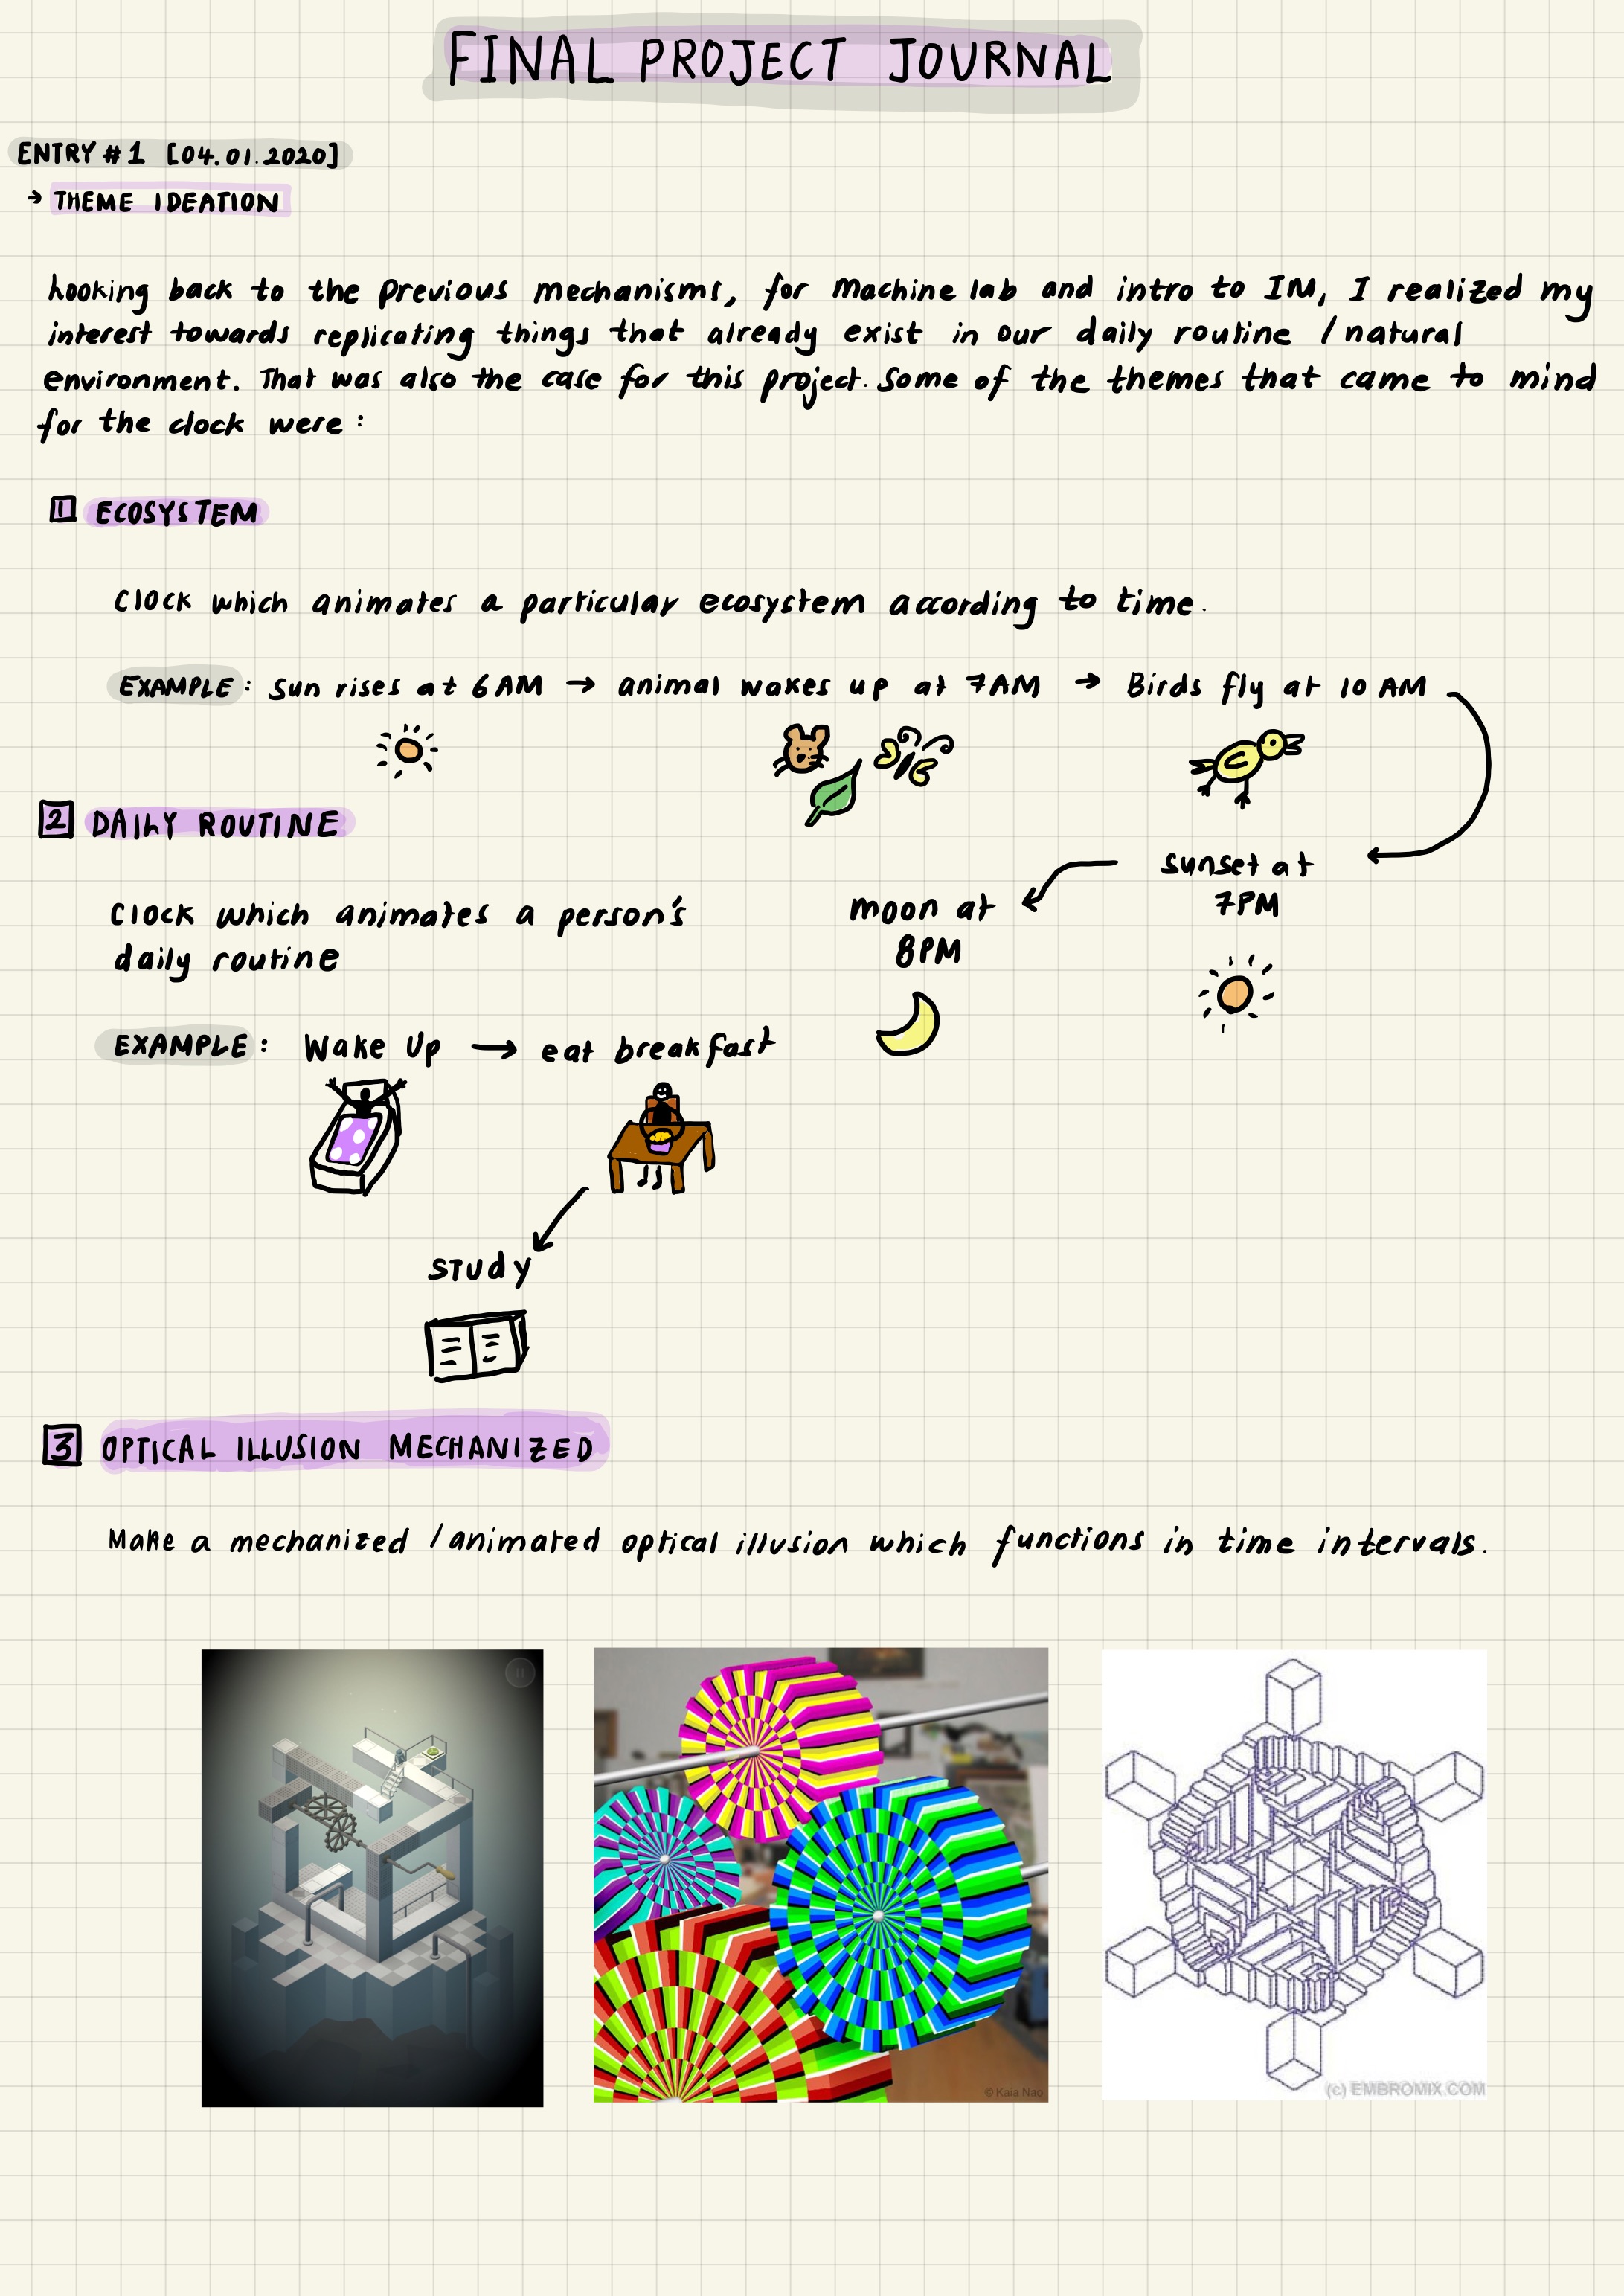 FINAL PROJECT JOURNAL
ENTRY #1 [04.01.2020]
→ THEME IDEATION
Looking back to the previous mechanisms, for Machine lab and intro to IM, I realized my
interest towards replicating things that already exist in our daily routine / natural
environment. That was also the case for this project. Some of the themes that came to mind
for the clock were:
1 ECOSYSTEM
Clock which animates a particular ecosystem according to time.
EXAMPLE: Sun rises at 6AM → animal wakes up at 7AM → Birds fly at 10 AM
sunset at
7PM
moon at
8PM
2 DAILY ROUTINE
Clock which animates a person's
daily routine
EXAMPLE: Wake Up → eat breakfast
study
3 OPTICAL ILLUSION MECHANIZED
Make a mechanized / animated optical illusion which functions in time intervals.
© Kaia Nao
(c) EMBROMIX.COM